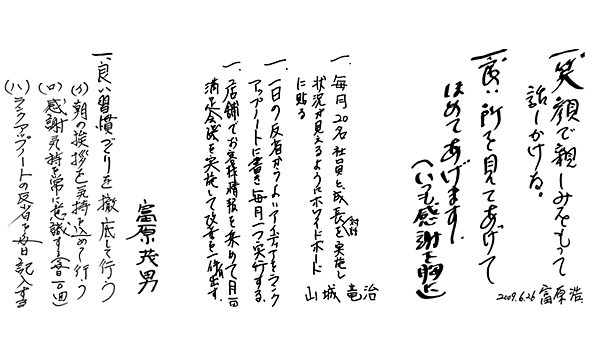 一、笑顔で親しみをもって
話しかける。
一、良い所を見てあげて
ほめてあげます。
(いつも感謝を胸に)
2009.6.26 富原 浩
一、毎月20名社員と成長対話を実施し
状況が見えるようにホワイトボード
に貼る
一、一日の反省かプラトいアイデアをランク
アップノートに書き毎月一つ実行する。
一、店舗でお客様情報を集めて月一回
満足会議を実施して改善を一件出す。
山城 竜治
一、良い習慣づくりを徹底して行う
(イ)朝の挨拶を気持を込めて行う
(ロ)感謝の気持を常に意識する(一日一回)
(ハ)ランクアップノートの反省を毎日記入する
富原茂男